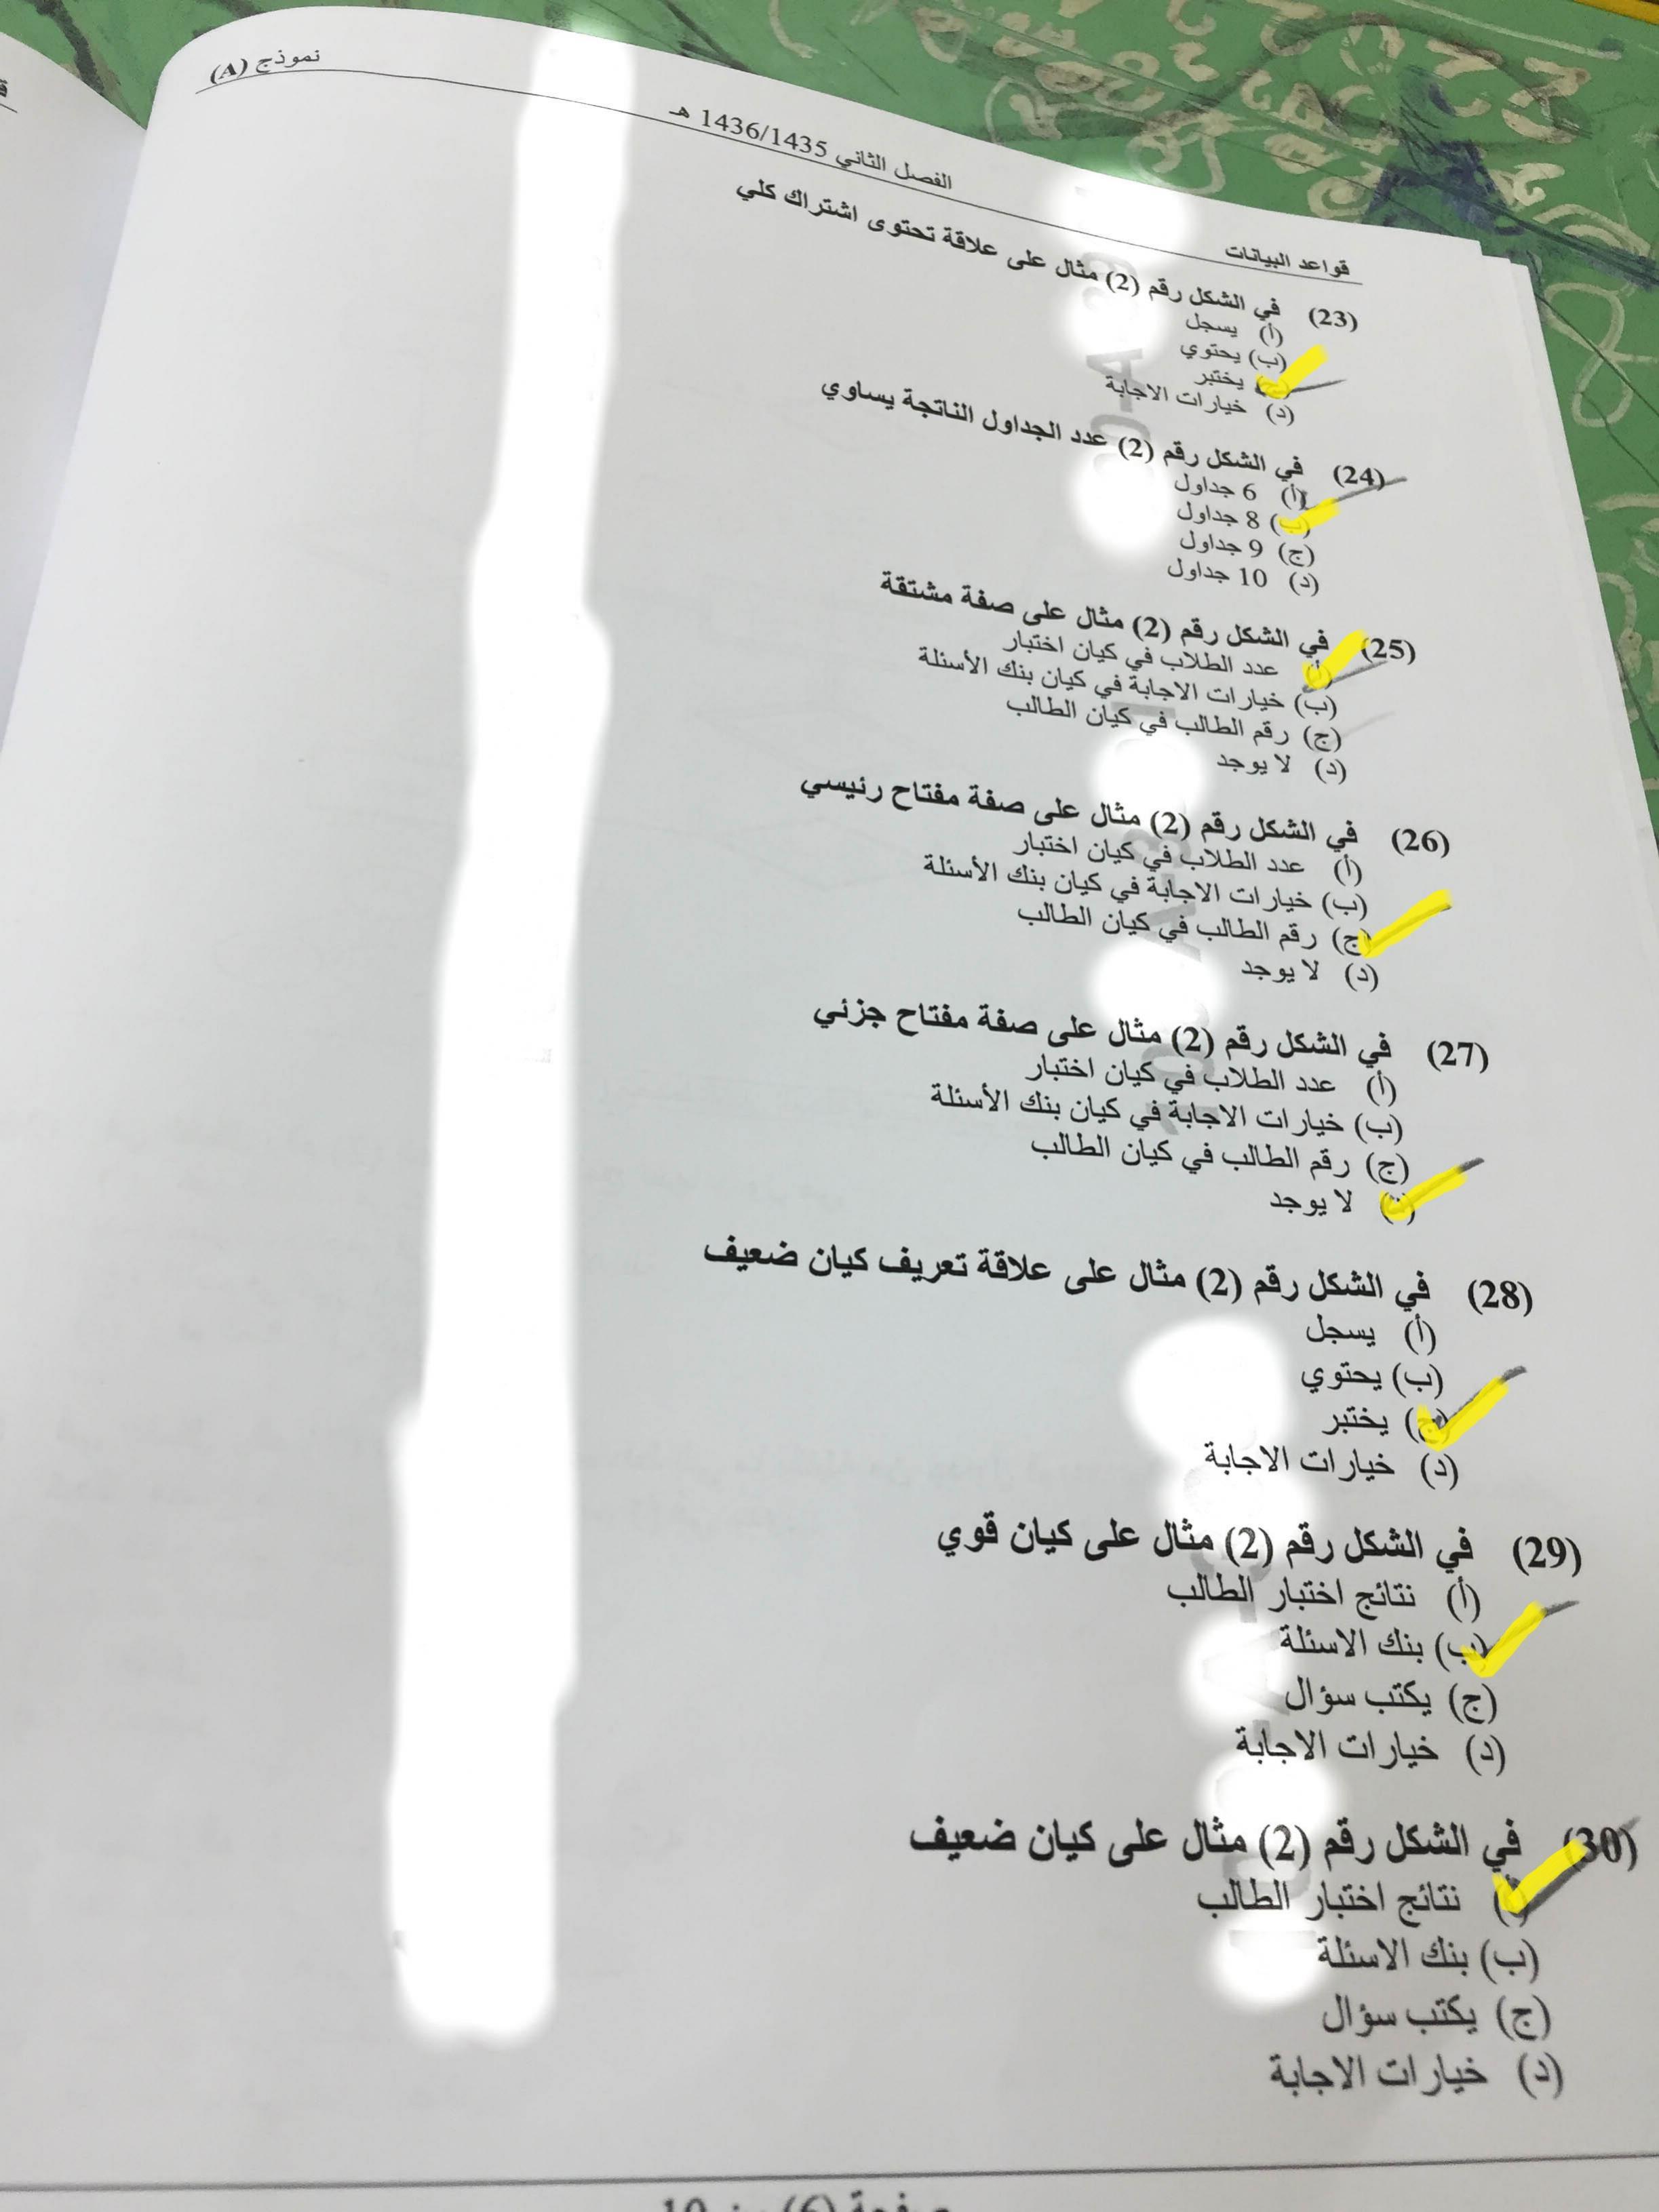 قواعد البيانات
الفصل الثاني 1436/1435 هـ
نموذج (A)
(23) في الشكل رقم (2) مثال على علاقة تحتوى اشتراك كلي
(أ) يسجل
(ب) يحتوي
(ج) يختبر
(د) خيارات الاجابة
(24) في الشكل رقم (2) عدد الجداول الناتجة يساوي
(أ) 6 جداول
(ب) 8 جداول
(ج) 9 جداول
(د) 10 جداول
(25) في الشكل رقم (2) مثال على صفة مشتقة
(أ) عدد الطلاب في كيان اختبار
(ب) خيارات الاجابة في كيان بنك الأسئلة
(ج) رقم الطالب في كيان الطالب
(د) لا يوجد
(26) في الشكل رقم (2) مثال على صفة مفتاح رئيسي
(أ) عدد الطلاب في كيان اختبار
(ب) خيارات الاجابة في كيان بنك الأسئلة
(ج) رقم الطالب في كيان الطالب
(د) لا يوجد
(27) في الشكل رقم (2) مثال على صفة مفتاح جزئي
(أ) عدد الطلاب في كيان اختبار
(ب) خيارات الاجابة في كيان بنك الأسئلة
(ج) رقم الطالب في كيان الطالب
(د) لا يوجد
(28) في الشكل رقم (2) مثال على علاقة تعريف كيان ضعيف
(أ) يسجل
(ب) يحتوي
(ج) يختبر
(د) خيارات الاجابة
(29) في الشكل رقم (2) مثال على كيان قوي
(أ) نتائج اختبار الطالب
(ب) بنك الاسئلة
(ج) يكتب سؤال
(د) خيارات الاجابة
(30) في الشكل رقم (2) مثال على كيان ضعيف
(أ) نتائج اختبار الطالب
(ب) بنك الاسئلة
(ج) يكتب سؤال
(د) خيارات الاجابة
صفحة (6) من 10